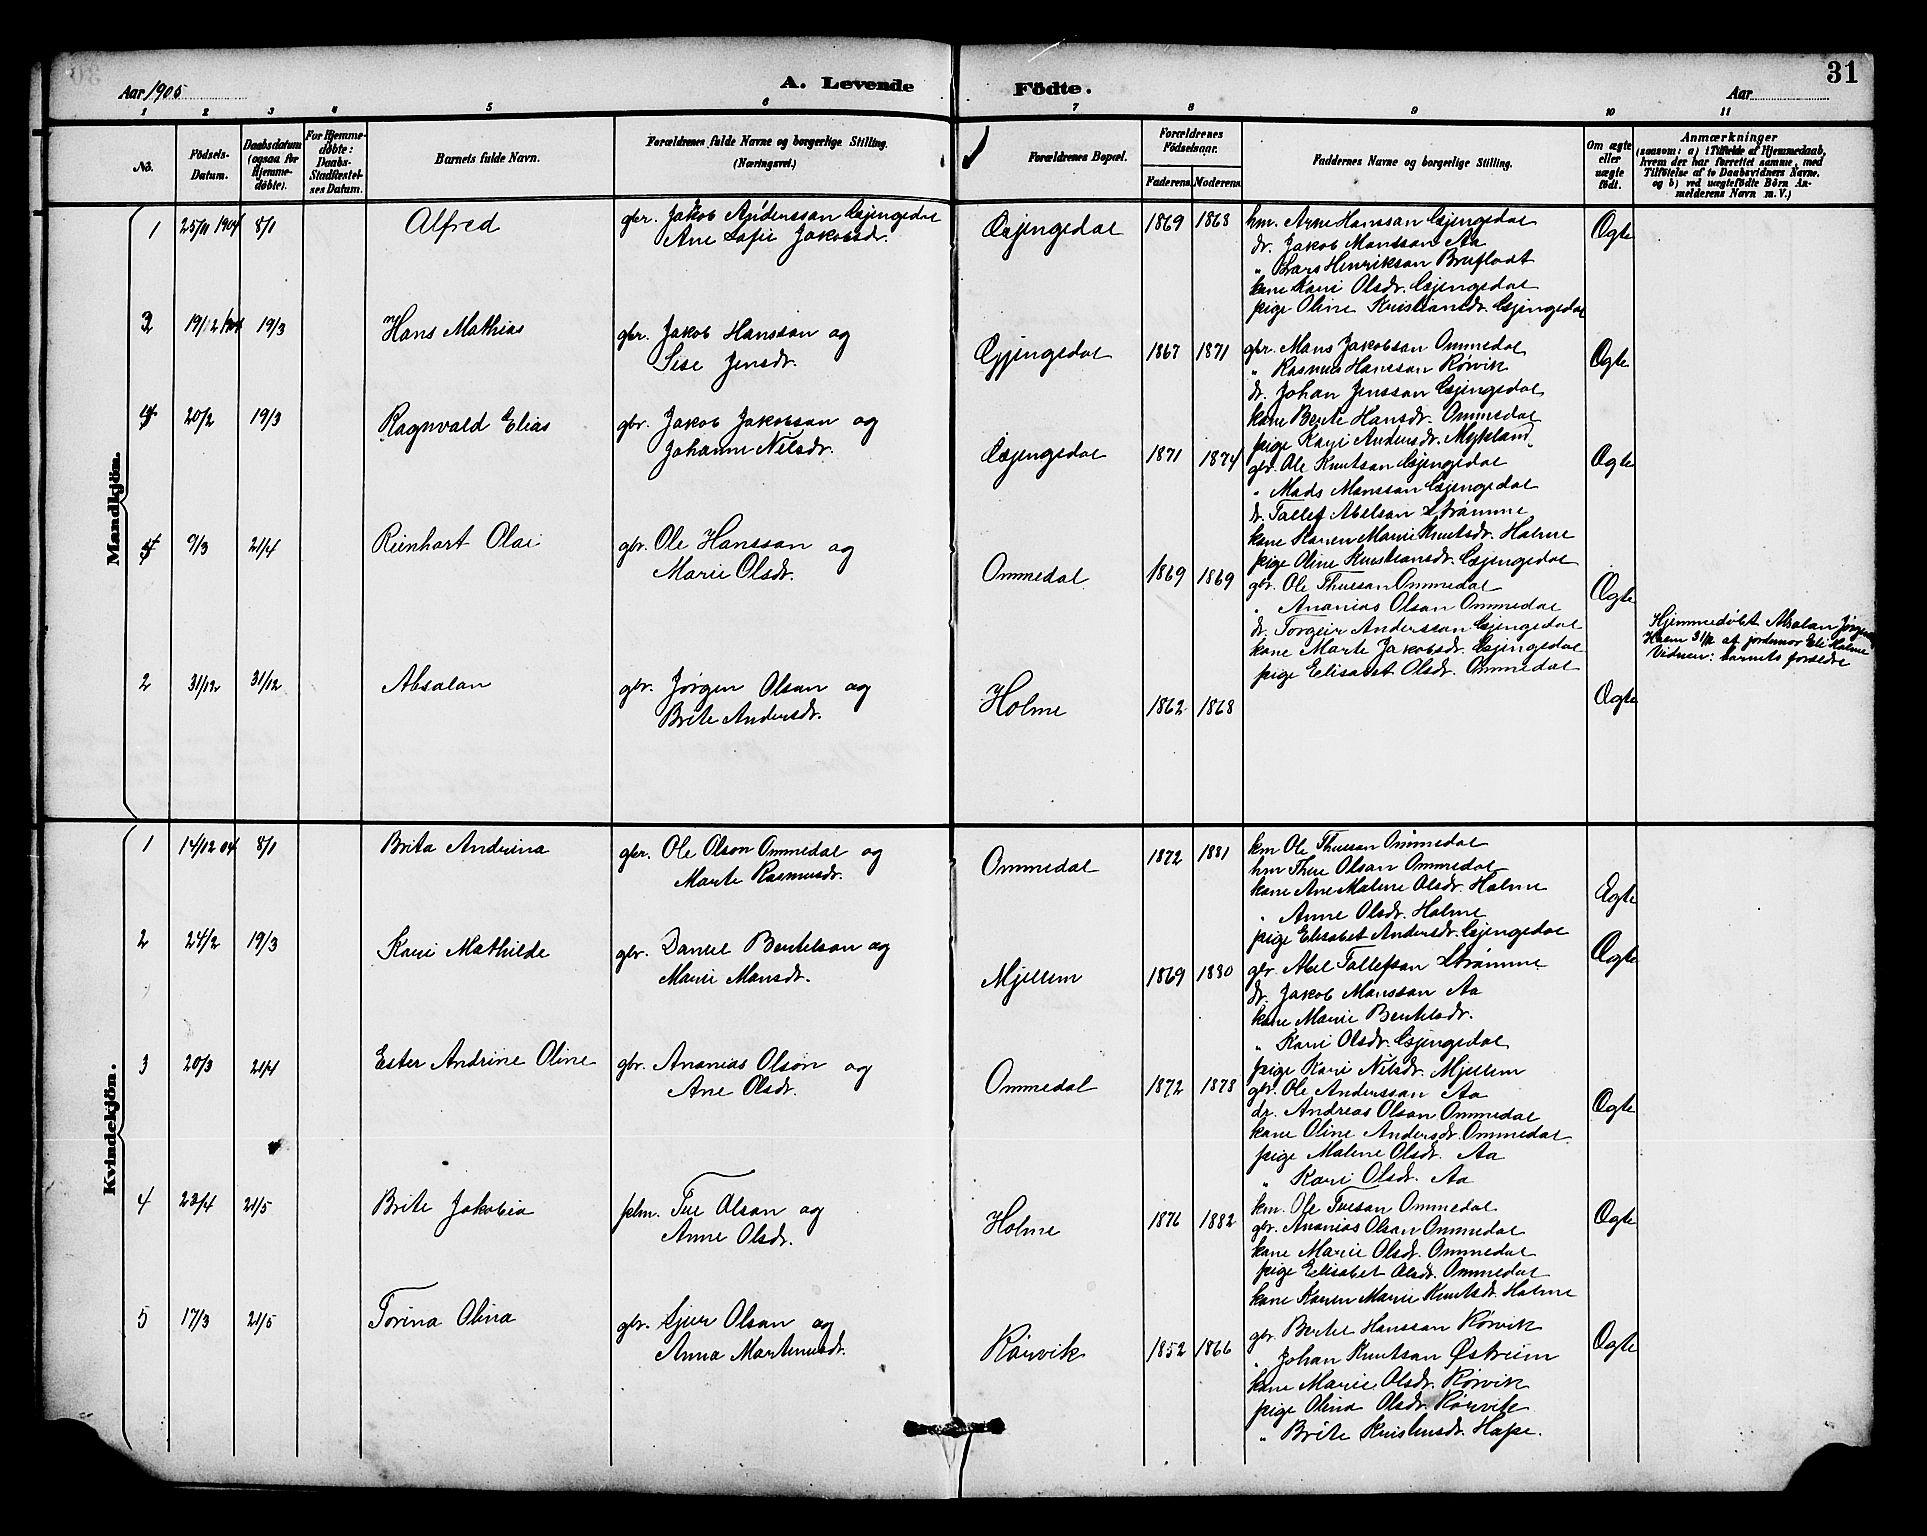 31
Aar 1905
A. Levende Födte.
Aar
1 2 3 4 5 6 7 8 9 10 11
No.
Födsels-Datum.
Daabsdatum (ogsaa for Hjemmedöbte).
For Hjemmedöbte: Daabs-Stadfæstelses Datum.
Barnets fulde Navn.
Forældrenes fulde Navne og borgerlige Stilling. (Næringsvei.)
Forældrenes Bopæl.
Forældrenes Födselsaar.
Faderens Moderens
Faddernes Navne og borgerlige Stilling.
Om ægte eller uægte födt.
Anmærkninger
(saasom: a) i Tilfælde af Hjemmedaab, hvem der har forrettet samme, med Tilföielse af to Daabsvidners Navne. og b) ved uægtefödte Börn Anmelderens Navn m. V.)
Mandkjön.
1 25/11 1904 8/1 Alfred
gbr. Jakob Anderssan Gjengedal
Ane Sofie Jakobsdr.
Gjengedal 1869 1868
hm. Arne Hanssan Gjengedal
dr. Jakob Manssan Aa
" Lars Henriksan Brufladt
kone Kari Olsdr. Gjengedal
pige Oline Kristiansdr. Gjengedal
Ægte
19/12 1904 19/3 Hans Mathias
gbr. Jakob Hanssan og
Sise Jensdr.
Gjengedal 1867 1871
gbr. Mans Jakobsan Ommedal
" Rasmus Hanssan Rørvik
dr. Johan Jenssan Gjengedal
kone Berte Hansdr. Ommedal
pige Kari Andersdr. Mykland
Ægte
20/2 19/3 Ragnvald Elias
gbr. Jakob Jakobsan og
Johanne Nilsdr.
Gjengedal 1871 1874
gbr. Ole Knutsan Gjengedal
" Mads Manssan Gjengedal
dr. Tallef Abelsan Strømme
kone Karen Marie Knutsdr. Holme
pige Oline Kristiansdr. Gjengedal
Ægte
9/3 21/4 Rienhart Olai
gbr. Ole Hanssan og
Marie Olsdr.
Ommedal 1869 1869
gbr. Ole Thuesan Ommedal
" Ananias Olsan Ommedal
dr. Torgeir Anderssan Gjengedal
kone Marte Jakobsdr. Gjengedal
pige Elisabet Olsdr. Ommedal
Ægte
2 31/12 31/12 Absalan
gbr. Jørgen Olsan og
Brite Andersdr.
Holme 1862 1868
Ægte
Hjemmedøbt Absalan Jørgensen
Holm 31/12 af jordmor Eli Holme
Vidner: barnets foreldre
Kvindekjön.
1 14/12 04 8/1 Brita Andrina
gbr. Ole Olson Ommedal og
Marte Rasmusdr.
Ommedal 1872 1881
km Ole Thuesan Ommedal
hm Thue Olsan Ommedal
kone Ane Malene Olsdr. Holme
" Anne Olsdr. Holme
pige Elisabet Andersdr. Gjengedal
Ægte
2 24/2 19/3 Kari Mathilde
gbr. Daniel Bentelsan og
Marie Mansdr.
Mjellem 1869 1880
gbr. Abel Tallefsan Strømme
dr. Jakob Manssan Aa
kone Marie Bentelsdr.
" Kari Olsdr. Gjengedal
pige Kari Nilsdr. Mjellem
Ægte
3 20/3 21/4 Ester Andrine Oline
gbr. Ananias Olson og
Ane Olsdr.
Ommedal 1872 1878
gbr. Ole Anderssan Aa
dr. Andreas Olsan Ommedal
kone Oline Andersdr. Ommedal
pige Malene Olsdr. Aa
" Kari Olsdr. Aa
Ægte
4 23/4 21/5 Brite Jakobia
plm. Tue Olsan og
Anne Olsdr.
Holme 1876 1882
km. Ole Tuesan Ommedal
gbr. Ananias Olsan Ommedal
kone Marie Olsdr. Ommedal
pige Elisabet Olsdr. Ommedal
kone Karen Marie Knutsdr. Holme
Ægte
5 17/3 21/5 Torina Olina
gbr. Sjur Olsan og
Anna Martinusdr.
Rørvik 1852 1866
gbr. Bertel Hanssan Rørvik
" Johan Knutsan Østreim
kone Marie Olsdr. Rørvik
pige Olina Olsdr. Rørvik
" Brite Kristensdr. Hope.
Ægte